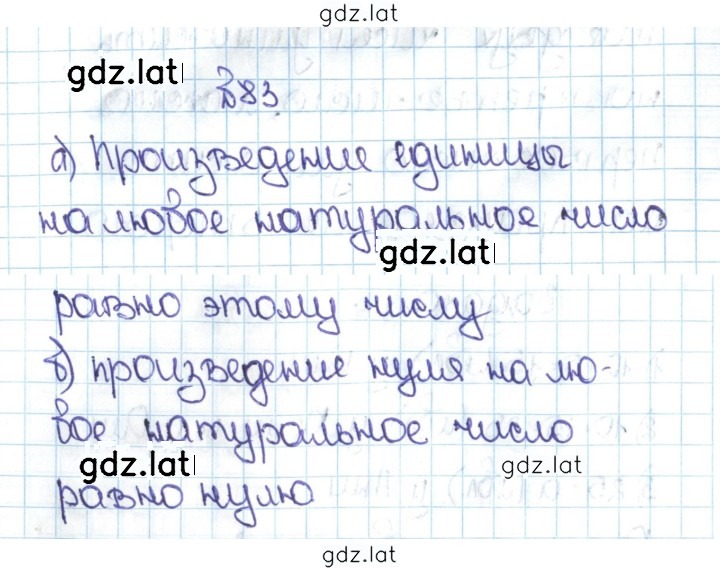 gdz.lat
gdz.lat
№83.
а) Произведение единицы
на любое натуральное число
gdz.lat
равно этому числу
б) произведение нуля на лю-
бое натуральное число
gdz.lat
gdz.lat
равно нулю
gdz.lat